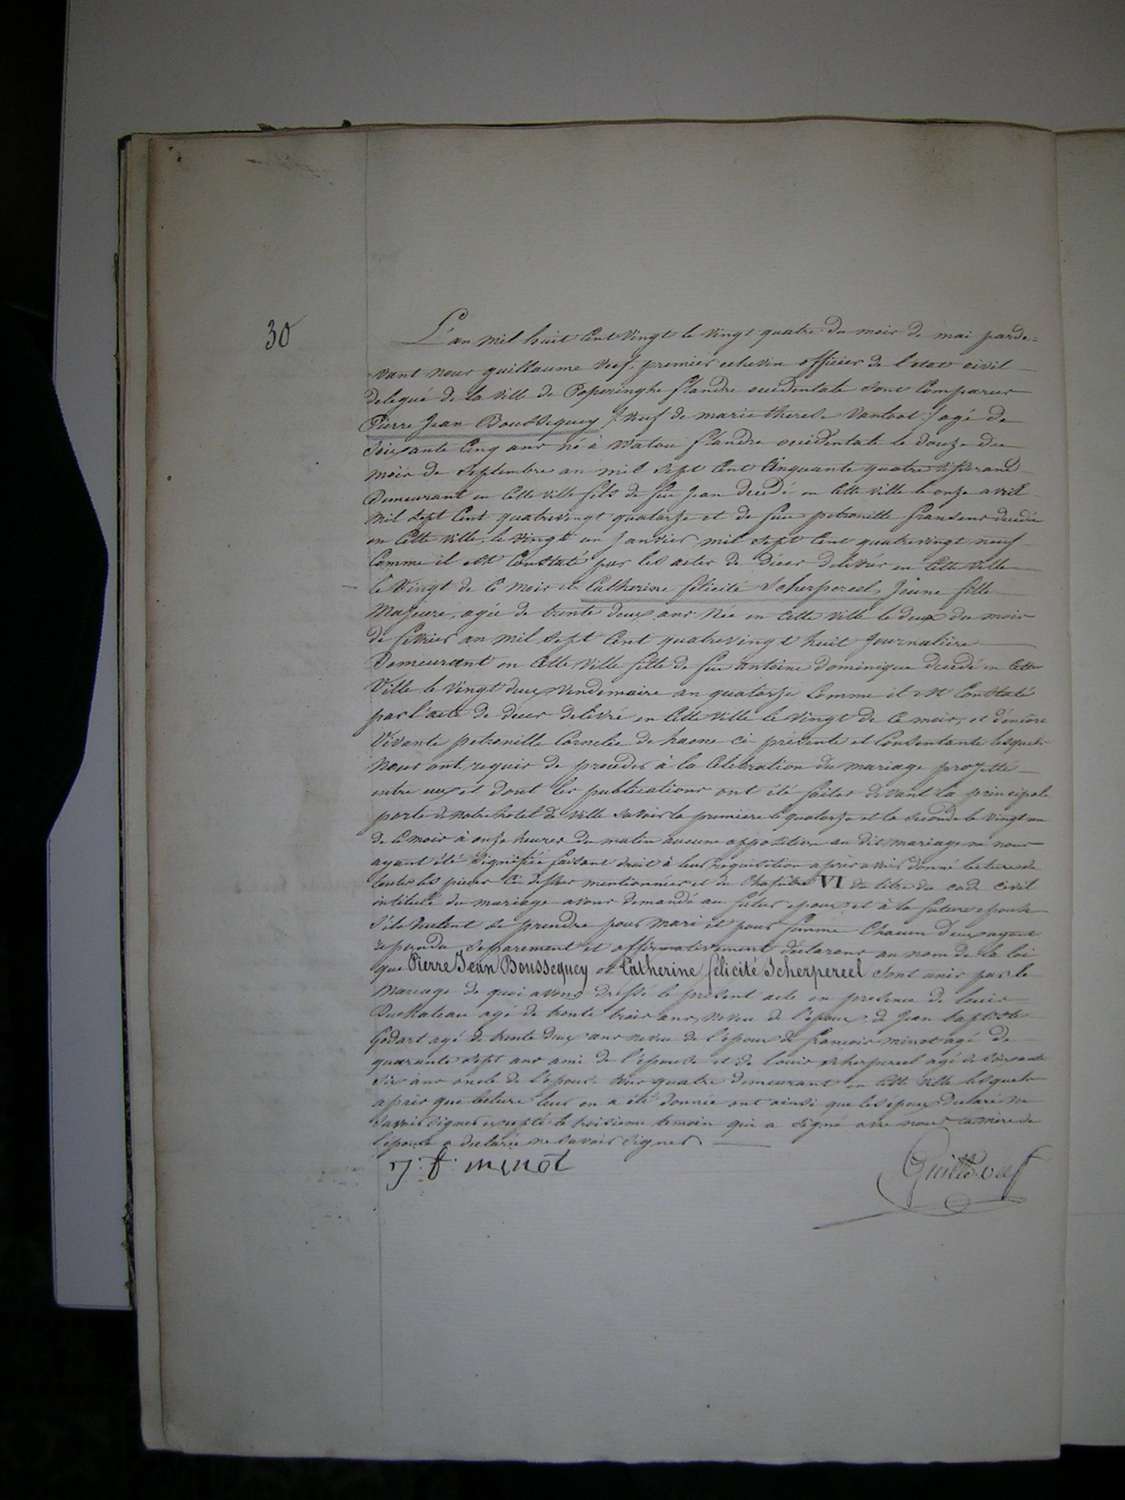 30
L'an mil huit cent vingt le vingt quatre du mois de mai parde=
vant nous guillaume Veef. premier echevin officier de l'etat civil
delegué de la ville de Poperinghe flandre occidentale sont comparus
Pierre Jean Boussequey veuf de marie therese Vanloot agé de
soixante cinq ans né à Watou flandre occidentale le douze du
mois de Septembre an mil sept cent cinquante quatre
demeurant en cette ville fils de feu Jean decedé en cette ville le onze avril
mil sept cent quatrevingt quatorze et de feue petronille fransens decedée
en cette ville, le vingt un janvier mil sept cent quatrevingt neuf
comme il est constaté par les actes de deces delivrés en cette ville
le vingt de ce mois et Catherine félicité Scherpereel, Jeune fille
majeure, agée de trente deux ans Née en cette ville le deux du mois
de fevrier an mil sept cent quatrevingt huit Journalière
demeurant en cette ville fille de feu antoine dominique decedé en cette
Ville le vingt deux vendemaire an quatorze comme il est constaté
par l'acte de deces delivré en cette ville le vingt de ce mois, et d'encore
Vivante petronille Cornelie de haene ci présente et consentante lesquels
nous ont requis de proceder à la celebration du mariage projetté
entre eux et dont les publications ont été faites devant la principale
porte de notre hotel de ville savoir la premiere le quatorze et la seconde le vingt un
de ce mois à onze heures du matin aucune opposition au dit mariage ne nous
ayant été signifiée faisant droit à leur requisition après avoir donné lecture de
toutes les pieces ci dessus mentionnées et du chapitre VI du titre du code civil
intitulé du mariage avons demandé au futur epoux et à la future epouse
s'ils veulent se prendre pour mari et pour femme chacun d'eux ayant
repondu separement et affirmativement declarons au nom de la loi
que Pierre Jean Boussequey et Catherine félicité Scherpereel sont unis par le
mariage de quoi avons dressé le présent acte en presence de louis
Duchateau agé de trente trois ans, neveu de l'epoux, de Jean baptiste
Godart agé de trente deux ans neveu de l'epoux de francois minot agé de
quarante sept ans ami de l'epouse et de louis scherpereel agé de soixante
six ans oncle de l'epouse tous quatre demeurant en cette ville lesquels
après que lecture leur en a été donnée ont ainsi que les epoux declaré ne
savoir signer excepté le troisieme temoin qui a signé avec nous la mère de
l'epouse a declarée ne savoir signer
j. f. minot
Guille Veef